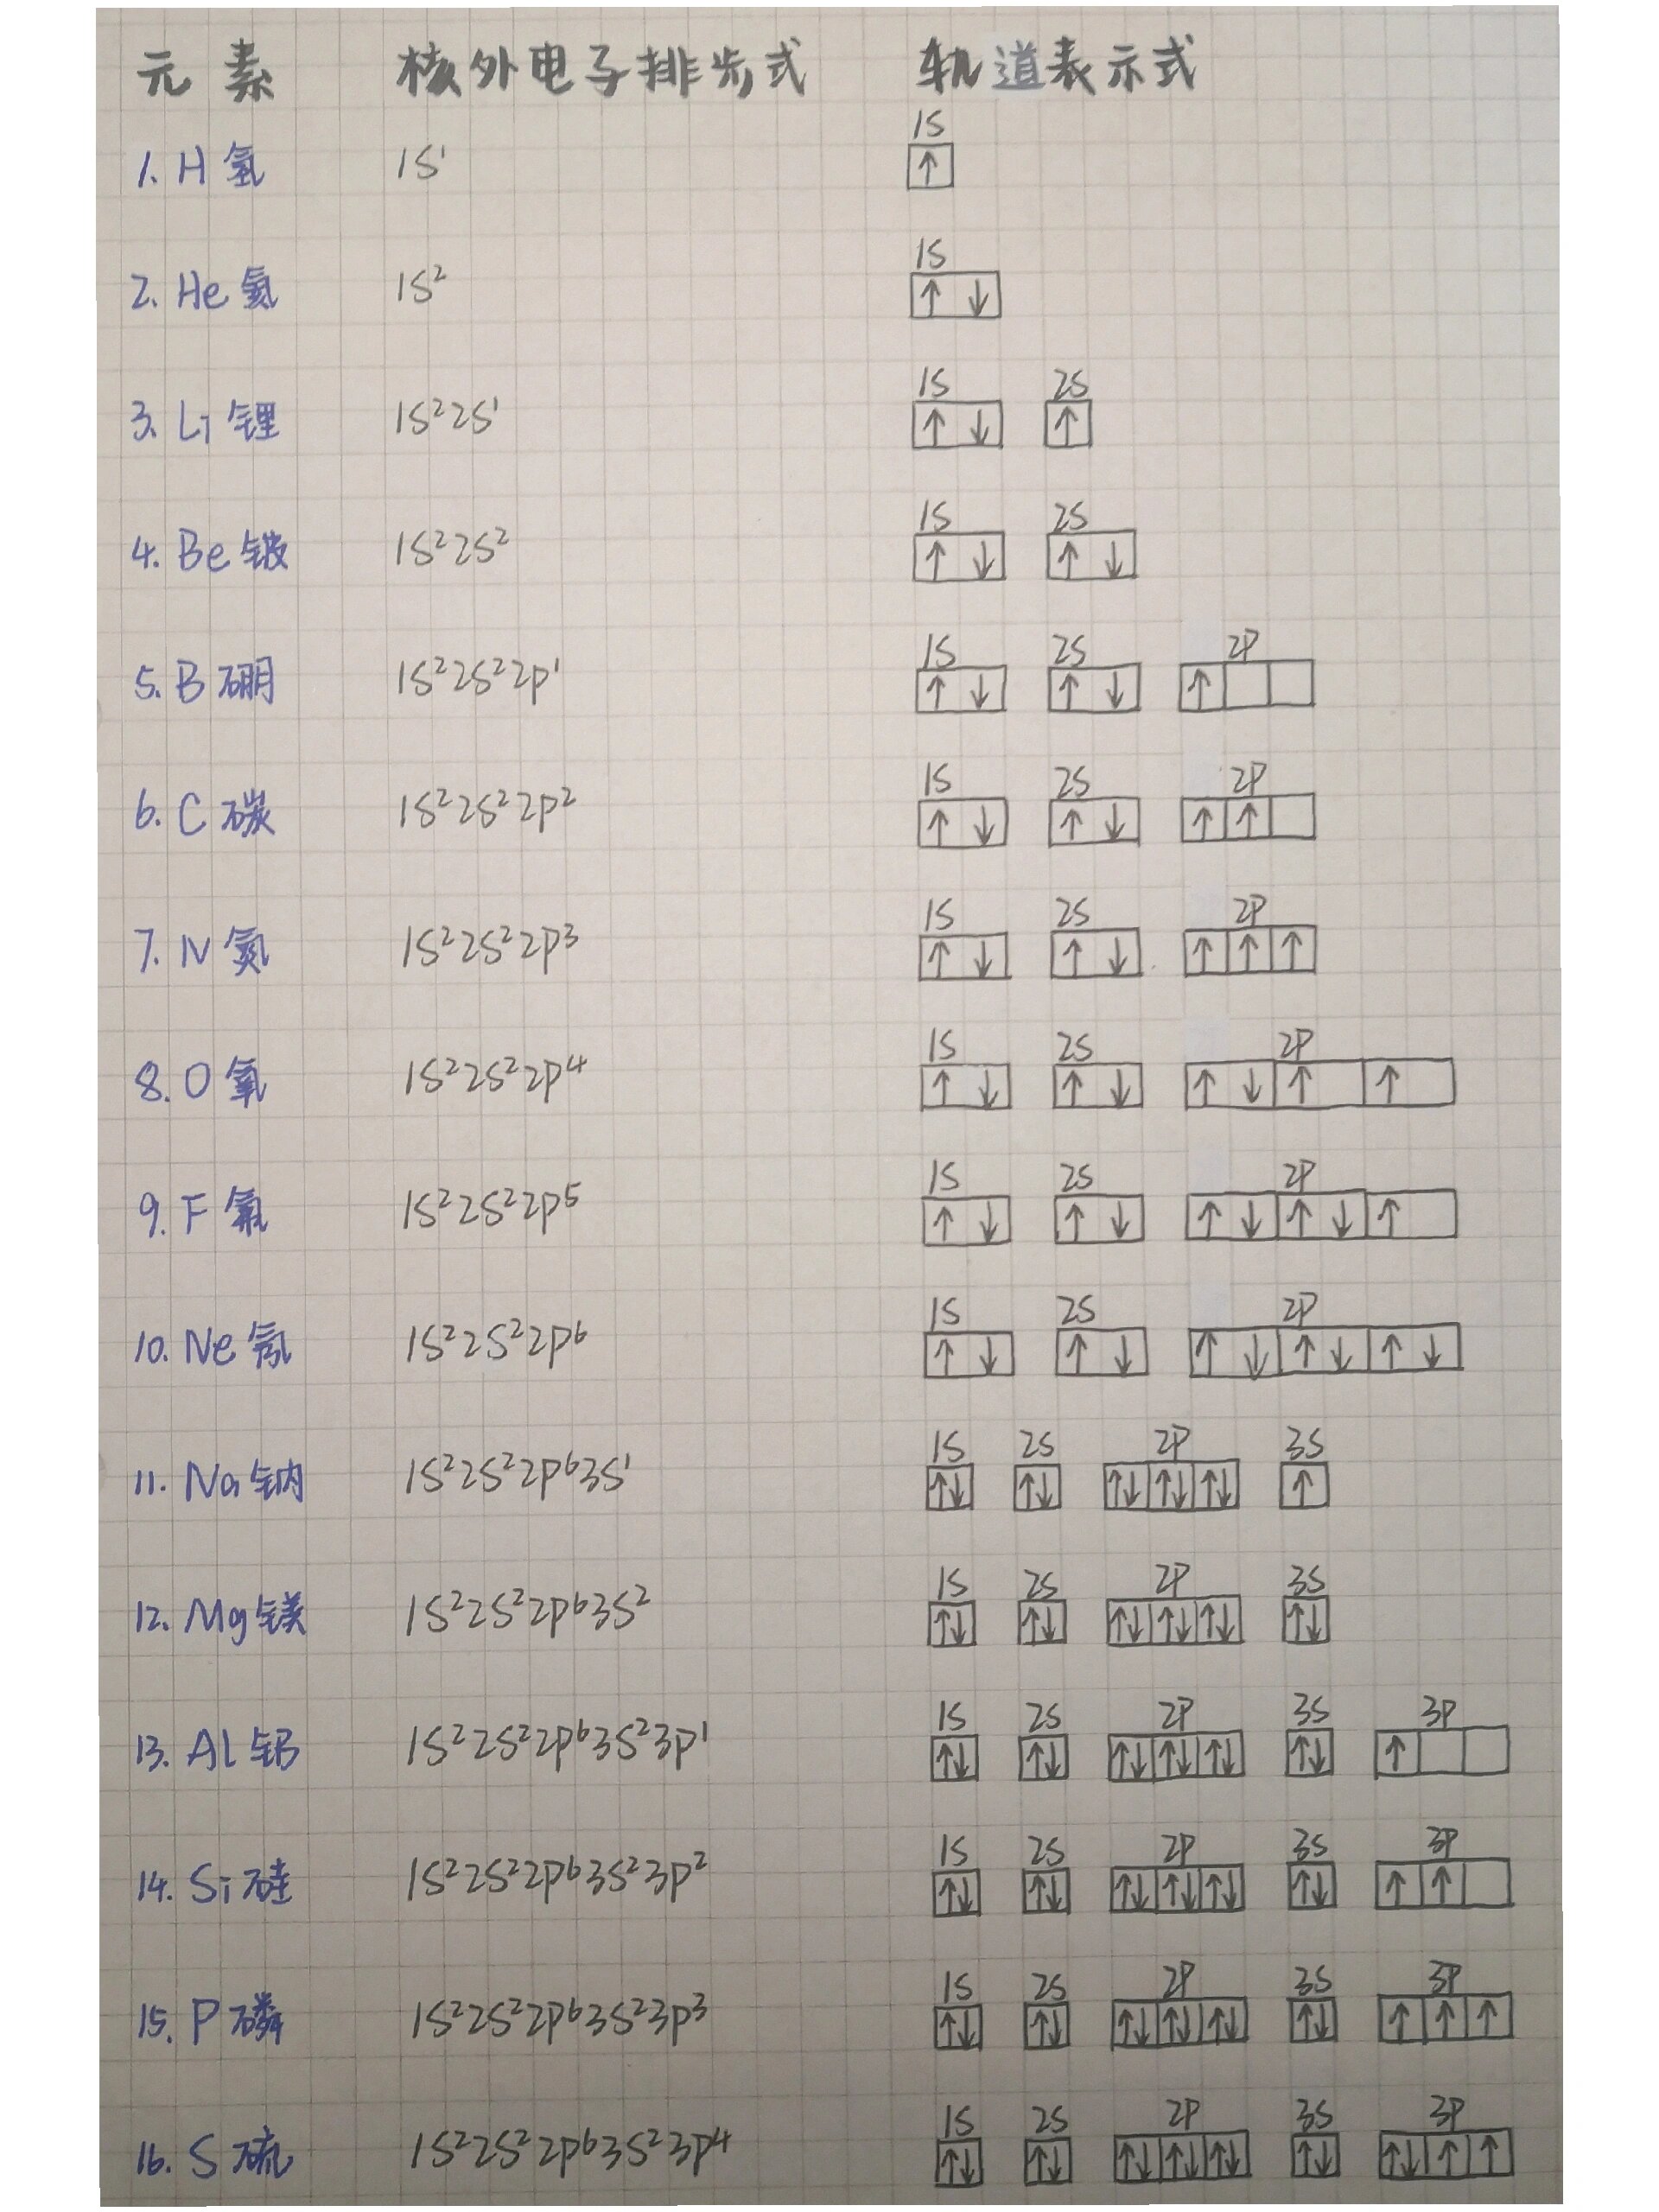 元素 核外电子排步式 轨道表示式
1S
1. H 氢 1S¹ ↑
1S
2. He 氦 1S² ↑↓
1S 2S
3. Li 锂 1S²2S¹ ↑↓ ↑
1S 2S
4. Be 铍 1S²2S² ↑↓ ↑↓
1S 2S 2P
5. B 硼 1S²2S²2p¹ ↑↓ ↑↓ ↑
1S 2S 2P
6. C 碳 1S²2S²2p² ↑↓ ↑↓ ↑ ↑
1S 2S 2P
7. N 氮 1S²2S²2p³ ↑↓ ↑↓ ↑ ↑ ↑
1S 2S 2P
8. O 氧 1S²2S²2p⁴ ↑↓ ↑↓ ↑↓ ↑ ↑
1S 2S 2P
9. F 氟 1S²2S²2p⁵ ↑↓ ↑↓ ↑↓ ↑↓ ↑
1S 2S 2P
10. Ne 氖 1S²2S²2p⁶ ↑↓ ↑↓ ↑↓ ↑↓ ↑↓
1S 2S 2P 3S
11. Na 钠 1S²2S²2p⁶3S¹ ↑↓ ↑↓ ↑↓ ↑↓ ↑↓ ↑
1S 2S 2P 3S
12. Mg 镁 1S²2S²2p⁶3S² ↑↓ ↑↓ ↑↓ ↑↓ ↑↓ ↑↓
1S 2S 2P 3S 3P
13. Al 铝 1S²2S²2p⁶3S²3p¹ ↑↓ ↑↓ ↑↓ ↑↓ ↑↓ ↑↓ ↑
1S 2S 2P 3S 3P
14. Si 硅 1S²2S²2p⁶3S²3p² ↑↓ ↑↓ ↑↓ ↑↓ ↑↓ ↑↓ ↑ ↑
1S 2S 2P 3S 3P
15. P 磷 1S²2S²2p⁶3S²3p³ ↑↓ ↑↓ ↑↓ ↑↓ ↑↓ ↑↓ ↑ ↑ ↑
1S 2S 2P 3S 3P
16. S 硫 1S²2S²2p⁶3S²3p⁴ ↑↓ ↑↓ ↑↓ ↑↓ ↑↓ ↑↓ ↑↓ ↑ ↑